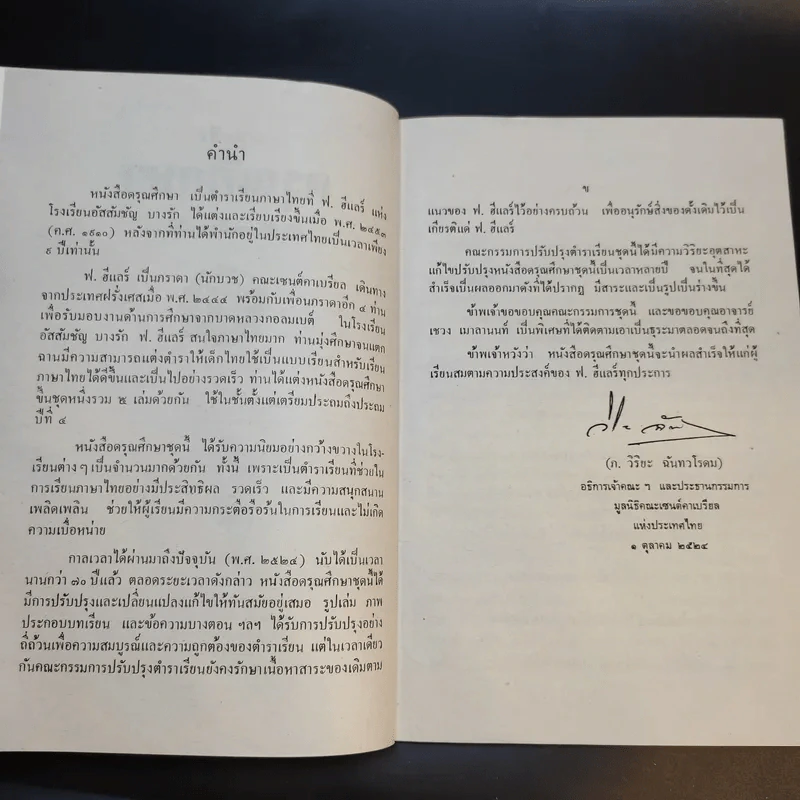 คำนำ
หนังสือดรุณศึกษา เป็นตำราเรียนภาษาไทยที่ ฟ. ฮีแลร์ แห่ง
โรงเรียนอัสสัมชัญ บางรัก ได้แต่งและเรียบเรียงขึ้นเมื่อ พ.ศ. ๒๔๕๓
(ค.ศ. ๑๙๑๐) หลังจากที่ท่านได้พำนักอยู่ในประเทศไทยเป็นเวลาเพียง
๙ ปีเท่านั้น
ฟ. ฮีแลร์ เป็นภราดา (นักบวช) คณะเซนต์คาเบรียล เดินทาง
จากประเทศฝรั่งเศสเมื่อ พ.ศ. ๒๔๔๔ พร้อมกับเพื่อนภราดาอีก ๔ ท่าน
เพื่อรับมอบงานด้านการศึกษาจากบาดหลวงกอลมเบต์ ในโรงเรียน
อัสสัมชัญ บางรัก ฟ. ฮีแลร์ สนใจภาษาไทยมาก ท่านมุ่งศึกษาจนแตก
ฉานมีความสามารถแต่งตำราให้เด็กไทยใช้เป็นแบบเรียนสำหรับเรียน
ภาษาไทยได้ดีขึ้นและเป็นไปอย่างรวดเร็ว ท่านได้แต่งหนังสือดรุณศึกษา
ขึ้นชุดหนึ่งรวม ๕ เล่มด้วยกัน ใช้ในชั้นตั้งแต่เตรียมประถมถึงประถม
ปีที่ ๔
หนังสือดรุณศึกษาชุดนี้ ได้รับความนิยมอย่างกว้างขวางในโรง-
เรียนต่าง ๆ เป็นจำนวนมากด้วยกัน ทั้งนี้ เพราะเป็นตำราเรียนที่ช่วยใน
การเรียนภาษาไทยอย่างมีประสิทธิผล รวดเร็ว และมีความสนุกสนาน
เพลิดเพลิน ช่วยให้ผู้เรียนมีความกระตือรือร้นในการเรียนและไม่เกิด
ความเบื่อหน่าย
กาลเวลาได้ผ่านมาถึงปัจจุบัน (พ.ศ. ๒๕๒๔) นับได้เป็นเวลา
นานกว่า ๗๐ ปีแล้ว ตลอดระยะเวลาดังกล่าว หนังสือดรุณศึกษาชุดนี้ได้
มีการปรับปรุงและเปลี่ยนแปลงแก้ไขให้ทันสมัยอยู่เสมอ รูปเล่ม ภาพ
ประกอบบทเรียน และข้อความบางตอน ฯลฯ ได้รับการปรับปรุงอย่าง
ถี่ถ้วนเพื่อความสมบูรณ์และความถูกต้องของตำราเรียน แต่ในเวลาเดียว
กันคณะกรรมการปรับปรุงตำราเรียนยังคงรักษาเนื้อหาสาระของเดิมตาม
ข
แนวของ ฟ. ฮีแลร์ไว้อย่างครบถ้วน เพื่ออนุรักษ์สิ่งของดั้งเดิมไว้เป็น
เกียรติแด่ ฟ. ฮีแลร์
คณะกรรมการปรับปรุงตำราเรียนชุดนี้ได้มีความวิริยะอุตสาหะ
แก้ไขปรับปรุงหนังสือดรุณศึกษาชุดนี้เป็นเวลาหลายปี จนในที่สุดได้
สำเร็จเป็นผลออกมาดังที่ได้ปรากฏ มีสาระและเป็นรูปเป็นร่างขึ้น
ข้าพเจ้าขอขอบคุณคณะกรรมการชุดนี้ และขอขอบคุณอาจารย์
เชวง เมาลานนท์ เป็นพิเศษที่ได้ติดตามเอาเป็นธุระมาตลอดจนถึงที่สุด
ข้าพเจ้าหวังว่า หนังสือดรุณศึกษาชุดนี้จะนำผลสำเร็จให้แก่ผู้
เรียนสมตามความประสงค์ของ ฟ. ฮีแลร์ทุกประการ
(ภ. วิริยะ ฉันทวโรดม)
อธิการเจ้าคณะ ฯ และประธานกรรมการ
มูลนิธิคณะเซนต์คาเบรียล
แห่งประเทศไทย
๑ ตุลาคม ๒๕๒๔